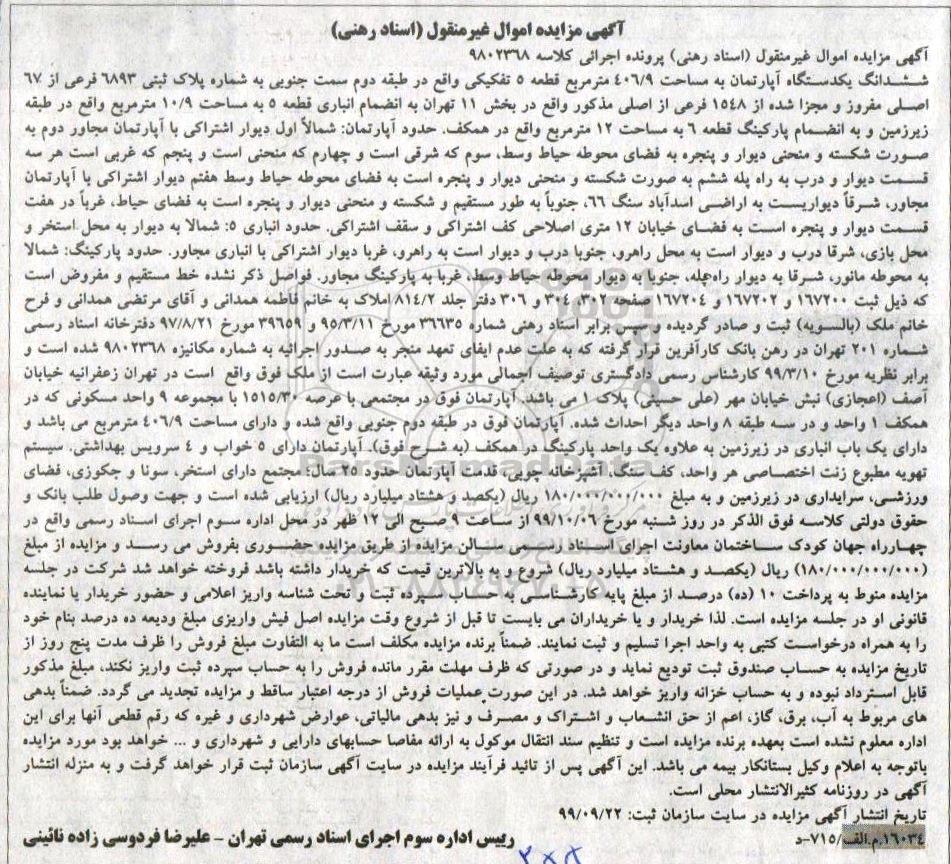 آگهی مزایده اموال غیرمنقول (اسناد رهنی)
آگهی مزایده اموال غیرمنقول (اسناد رهنی) پرونده اجرائی کلاسه ۹۸۰۲۳۶۸
ششدانگ یکدستگاه آپارتمان به مساحت ۴۰۶/۹ مترمربع قطعه ۵ تفکیکی واقع در طبقه دوم سمت جنوبی به شماره پلاک ثبتی ۶۸۹۳ فرعی از ۶۷
اصلی مفروز و مجزا شده از ۱۵۴۸ فرعی از اصلی مذکور واقع در بخش ۱۱ تهران به انضمام انباری قطعه ۵ به مساحت ۱۰/۹ مترمربع واقع در طبقه
زیرزمین و به انضمام پارکینگ قطعه ۶ به مساحت ۱۲ مترمربع واقع در همکف. حدود آپارتمان: شمالاً اول دیوار اشتراکی با آپارتمان مجاور دوم به
صورت شکسته و منحنی دیوار و پنجره به فضای محوطه حیاط وسط، سوم که شرقی است و چهارم که منحنی است و پنجم که غربی است هر سه
قسمت دیوار و درب به راه پله ششم به صورت شکسته و منحنی دیوار و پنجره است به فضای محوطه حیاط وسط هفتم دیوار اشتراکی با آپارتمان
مجاور، شرقاً دیواریست به اراضی اسدآباد سنگ ۶۶، جنوباً به طور مستقیم و شکسته و منحنی دیوار و پنجره است به فضای حیاط، غرباً در هفت
قسمت دیوار و پنجره است به فضای خیابان ۱۲ متری اصلاحی کف اشتراکی و سقف اشتراکی. حدود انباری ۵: شمالا به دیوار به محل استخر و
محل بازی، شرقا درب و دیوار است به محل راهرو، جنوبا درب و دیوار است به راهرو، غربا دیوار اشتراکی با انباری مجاور. حدود پارکینگ: شمالا
به محوطه مانور، شرقا به دیوار راه‌پله، جنوبا به دیوار محوطه حیاط وسط، غربا به پارکینگ مجاور. فواصل ذکر نشده خط مستقیم و مفروض است
که ذیل ثبت ۱۶۷۲۰۰ و ۱۶۷۲۰۲ و ۱۶۷۲۰۴ صفحه ۳۰۲، ۳۰۴ و ۳۰۶ دفتر جلد ۸۱۴/۲ املاک به خانم فاطمه همدانی و آقای مرتضی همدانی و فرح
خانم ملک (بالسویه) ثبت و صادر گردیده و سپس برابر اسناد رهنی شماره ۳۶۶۳۵ مورخ ۹۵/۳/۱۱ و ۳۹۶۵۹ مورخ ۹۷/۸/۲۱ دفترخانه اسناد رسمی
شماره ۲۰۱ تهران در رهن بانک کارآفرین قرار گرفته که به علت عدم ایفای تعهد منجر به صدور اجرائیه به شماره مکانیزه ۹۸۰۲۳۶۸ شده است و
برابر نظریه مورخ ۹۹/۳/۱۰ کارشناس رسمی دادگستری توصیف اجمالی مورد وثیقه عبارت است از ملک فوق واقع است در تهران زعفرانیه خیابان
آصف (اعجازی) نبش خیابان مهر (علی حسینی) پلاک ۱ می باشد. آپارتمان فوق در مجتمعی با عرصه ۱۵۱۵/۳۰ با مجموعه ۹ واحد مسکونی که در
همکف ۱ واحد و در سه طبقه ۸ واحد دیگر احداث شده. آپارتمان فوق در طبقه دوم جنوبی واقع شده و دارای مساحت ۴۰۶/۹ مترمربع می باشد و
دارای یک باب انباری در زیرزمین به علاوه یک واحد پارکینگ در همکف (به شرح فوق). آپارتمان دارای ۵ خواب و ۴ سرویس بهداشتی. سیستم
تهویه مطبوع زنت اختصاصی هر واحد، کف سنگ، آشپزخانه چوبی، قدمت آپارتمان حدود ۲۵ سال؛ مجتمع دارای استخر، سونا و جکوزی، فضای
ورزشی، سرایداری در زیرزمین و به مبلغ ۱۸۰/۰۰۰/۰۰۰/۰۰۰ ریال (یکصد و هشتاد میلیارد ریال) ارزیابی شده است و جهت وصول طلب بانک و
حقوق دولتی کلاسه فوق الذکر در روز شنبه مورخ ۹۹/۱۰/۰۶ از ساعت ۹ صبح الی ۱۲ ظهر در محل اداره سوم اجرای اسناد رسمی واقع در
چهارراه جهان کودک ساختمان معاونت اجرای اسناد رسمی سالن مزایده از طریق مزایده حضوری بفروش می رسد و مزایده از مبلغ
(۱۸۰/۰۰۰/۰۰۰/۰۰۰) ریال (یکصد و هشتاد میلیارد ریال) شروع و به بالاترین قیمت که خریدار داشته باشد فروخته خواهد شد شرکت در جلسه
مزایده منوط به پرداخت ۱۰ (ده) درصد از مبلغ پایه کارشناسی به حساب سپرده ثبت و تحت شناسه واریز اعلامی و حضور خریدار یا نماینده
قانونی او در جلسه مزایده است. لذا خریدار و یا خریداران می بایست تا قبل از شروع وقت مزایده اصل فیش واریزی مبلغ ودیعه ده درصد بنام خود
را به همراه درخواست کتبی به واحد اجرا تسلیم و ثبت نمایند. ضمناً برنده مزایده مکلف است ما به التفاوت مبلغ فروش را ظرف مدت پنج روز از
تاریخ مزایده به حساب صندوق ثبت تودیع نماید و در صورتی که ظرف مهلت مقرر مانده فروش را به حساب سپرده ثبت واریز نکند، مبلغ مذکور
قابل استرداد نبوده و به حساب خزانه واریز خواهد شد. در این صورت عملیات فروش از درجه اعتبار ساقط و مزایده تجدید می گردد. ضمناً بدهی
های مربوط به آب، برق، گاز، اعم از حق انشعاب و اشتراک و مصرف و نیز بدهی مالیاتی، عوارض شهرداری و غیره که رقم قطعی آنها برای این
اداره معلوم نشده است بعهده برنده مزایده است و تنظیم سند انتقال موکول به ارائه مفاصا حسابهای دارایی و شهرداری و ... خواهد بود مورد مزایده
باتوجه به اعلام وکیل بستانکار بیمه می باشد. این آگهی پس از تائید فرآیند مزایده در سایت آگهی سازمان ثبت قرار خواهد گرفت و به منزله انتشار
آگهی در روزنامه کثیرالانتشار محلی است.
تاریخ انتشار آگهی مزایده در سایت سازمان ثبت: ۹۹/۰۹/۲۲
۱۶۰۳۴.م.الف/۷۱۵-د رییس اداره سوم اجرای اسناد رسمی تهران - علیرضا فردوسی زاده نائینی